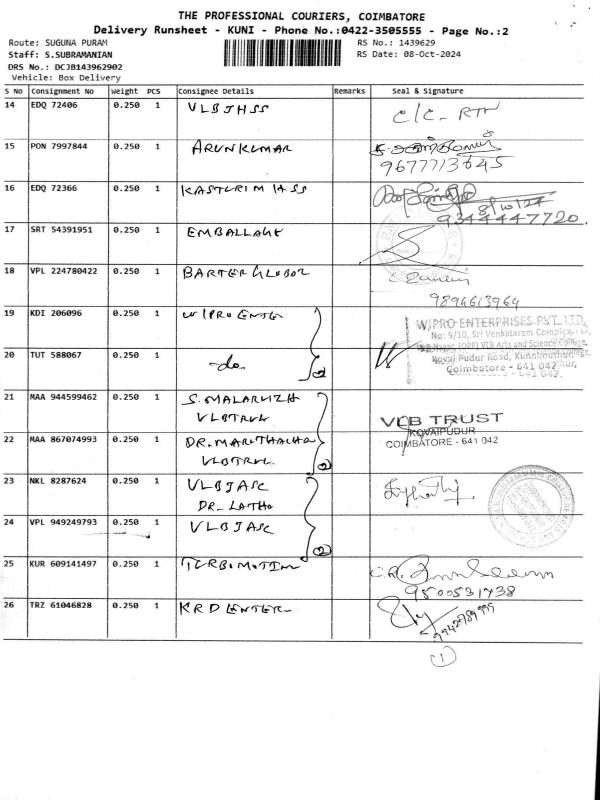 THE PROFESSIONAL COURIERS, COIMBATORE
Delivery Runsheet - KUNI - Phone No.:0422-3505555 - Page No.:2
Route: SUGUNA PURAM RS No.: 1439629
Staff: S.SUBRAMANIAN RS Date: 08-Oct-2024
DRS No.: DCJB143962902
Vehicle: Box Delivery
S No Consignment No Weight PCS Consignee Details Remarks Seal & Signature
14 EDQ 72406 0.250 1 VLBJHSS C/C- RTH
15 PON 7997844 0.250 1 ARUNKUMAR
9677713645
16 EDQ 72366 0.250 1 8/10/24
9344447720
17 SRT 54391951 0.250 1 EMBALLAGE
18 VPL 224780422 0.250 1 BARTER GLOBOL
9894613964
19 KDI 206096 0.250 1 WIPRO ENTE WIPRO ENTERPRISES PVT. LTD.
No: 9/10, Sri Venkataram Complex
20 TUT 588067 0.250 1 -do- 2 Kovai Pudur Road, Kuniamuthur,
Coimbatore - 641 042
21 MAA 944599462 0.250 1 S. MALARVIZH
VLBTRUL VLB TRUST
KOVAIPUDUR
22 MAA 867074993 0.250 1 DR. MARUTHACHA COIMBATORE - 641 042
VLBTRUL 2
23 NKL 8287624 0.250 1 VLBJASC
DR. LATHA
24 VPL 949249793 0.250 1 VLBJASC 2
25 KUR 609141497 0.250 1 TURBOMOTIM
9500531738
26 TRZ 61046828 0.250 1 KRD ENTER
9942789999
1